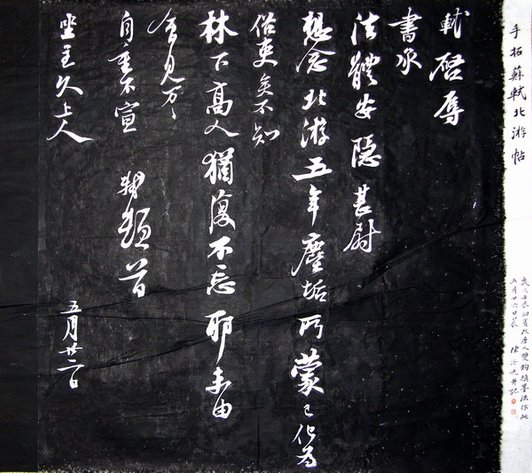 手拓蘇軾北游帖
軾啓辱
書承
法體安隱甚尉
想念北游五年塵垢所蒙已化爲
俗吏矣不知
林下高人猶復不忘耶未由
會見万万
自重不宣 軾頓首
坐主久上人
五月廿二日